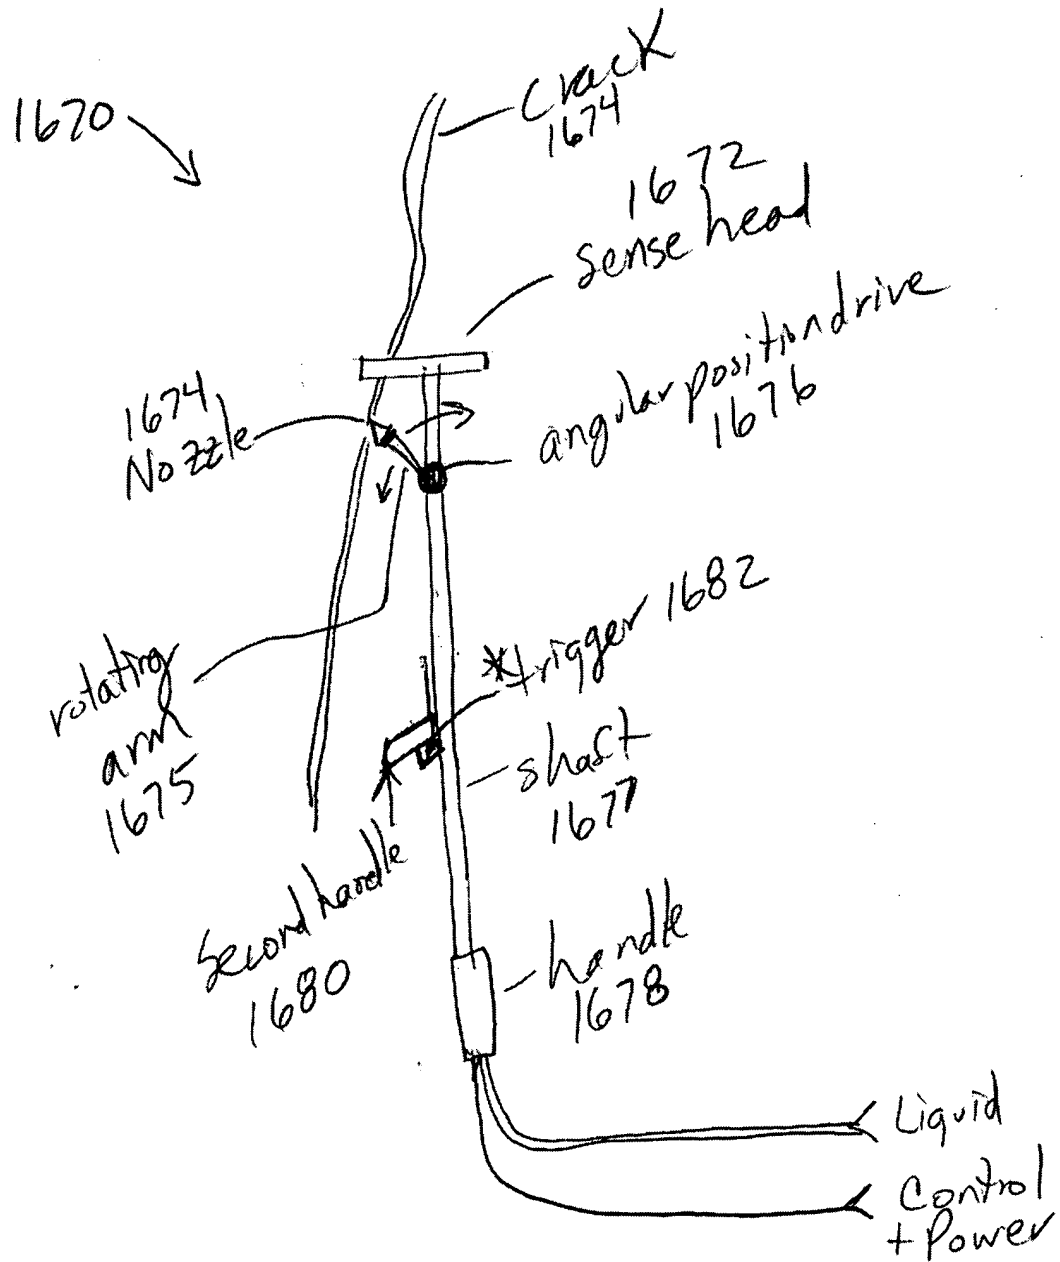 1670
Crack
1674
1672
Sense head
angular position drive
1676
1674
Nozzle
*trigger 1682
rotating
arm
1675
shaft
1677
Second handle
1680
handle
1678
Liquid
Control
+ Power